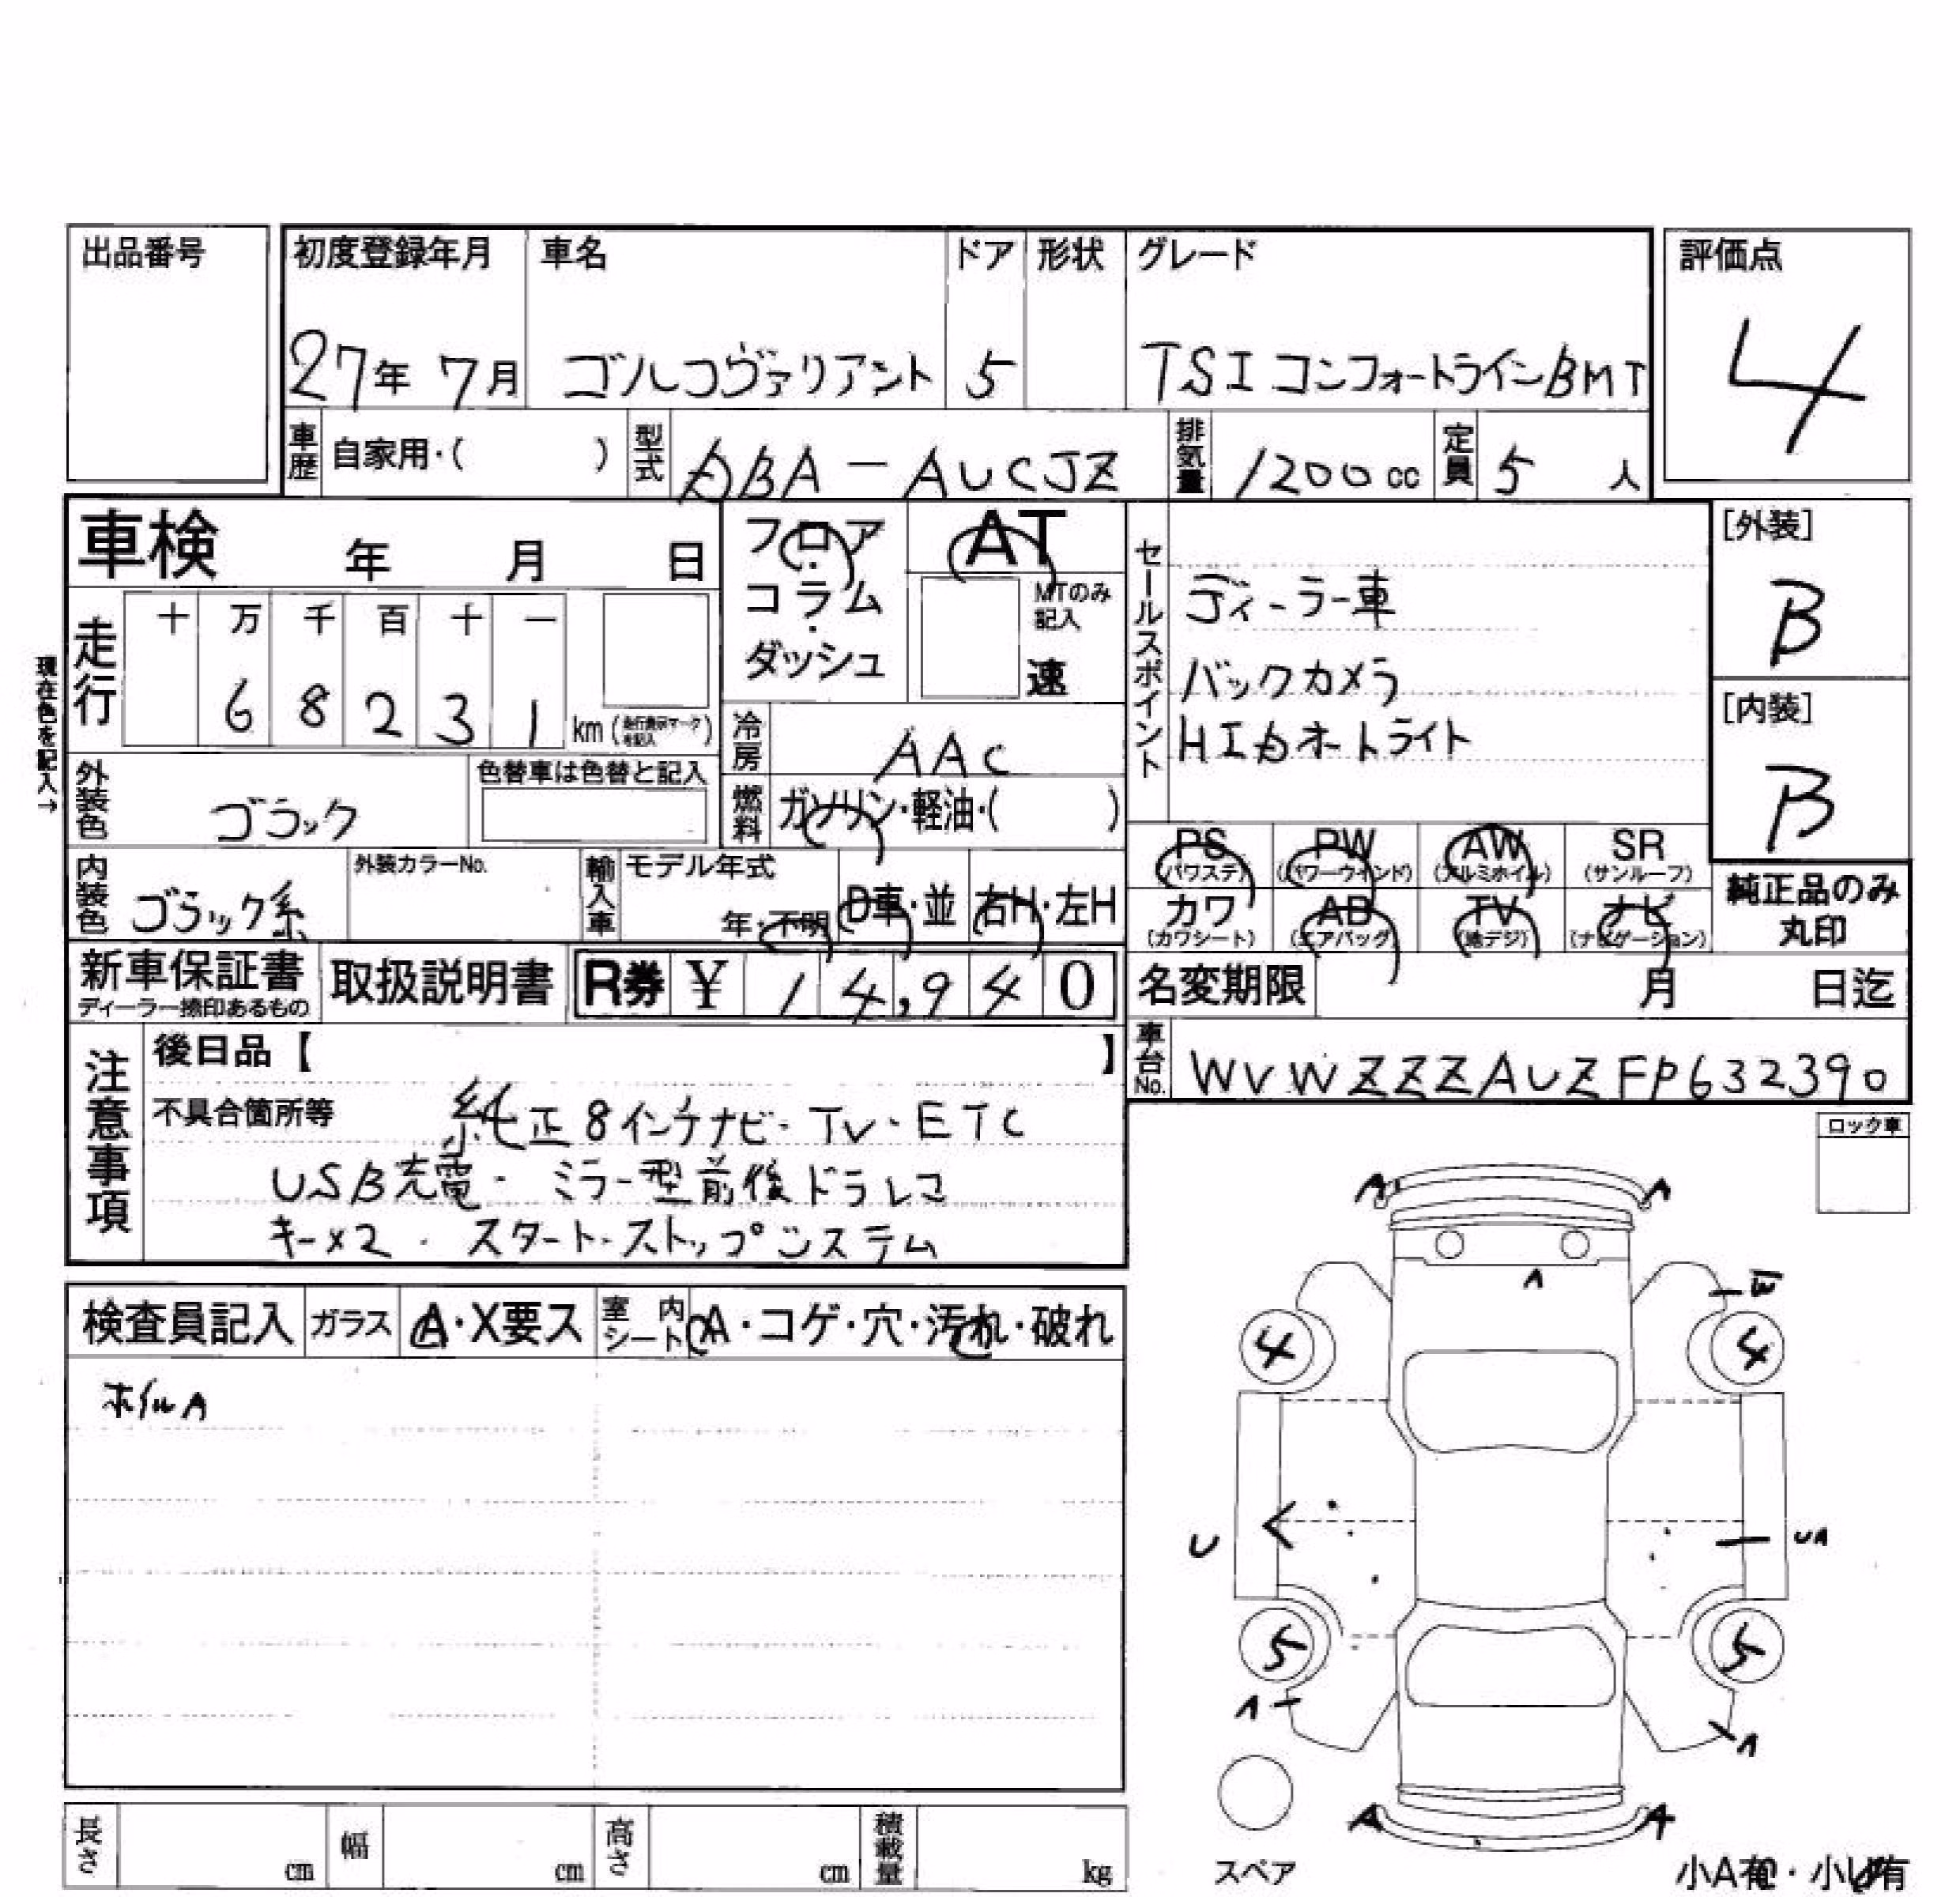 出品番号
初度登録年月 車名 ドア 形状 グレード
評価点
27年 7月 ゴルフヴァリアント 5 TSI コンフォートラインBMT
4
車歴 自家用・( ) 型式 DBA-AUCJZ 排気量 1200cc 定員 5 人
車検 年 月 日
フロア・コラム・ダッシュ
AT
MTのみ記入
速
セールスポイント
ディーラー車
バックカメラ
HIDオートライト
[外装]
B
[内装]
B
現在色を記入→
走行 十 万 千 百 十 一
6 8 2 3 1 km (走行表示マークを記入)
冷房 AAC
外装色 ブラック 色替車は色替と記入
燃料 ガソリン・軽油・( )
PS (パワステ) PW (パワーウインド) AW (アルミホイル) SR (サンルーフ)
カワ (カワシート) AB (エアバッグ) TV (地デジ) ナビ (ナビゲーション)
純正品のみ丸印
内装色 ブラック系 外装カラーNo. 輸入車 モデル年式 年・不明 D車・並 右H・左H
新車保証書 ディーラー捺印あるもの 取扱説明書 R券 ¥ 14,940
名変期限 月 日迄
車台No. WVWZZZAUZFP632390
注意事項
後日品【 】
不具合箇所等 純正8インチナビ・TV・ETC
USB充電・ミラー型前後ドラレコ
キー×2・スタート・ストップシステム
ロック車
検査員記入 ガラス A・X要ス 室内シート A・コゲ・穴・汚れ・破れ
ホイルA
A A
A
W
4 4
U UA
5 5
A A
A A
スペア
小A有・小U有
長さ cm 幅 cm 高さ cm 積載量 kg